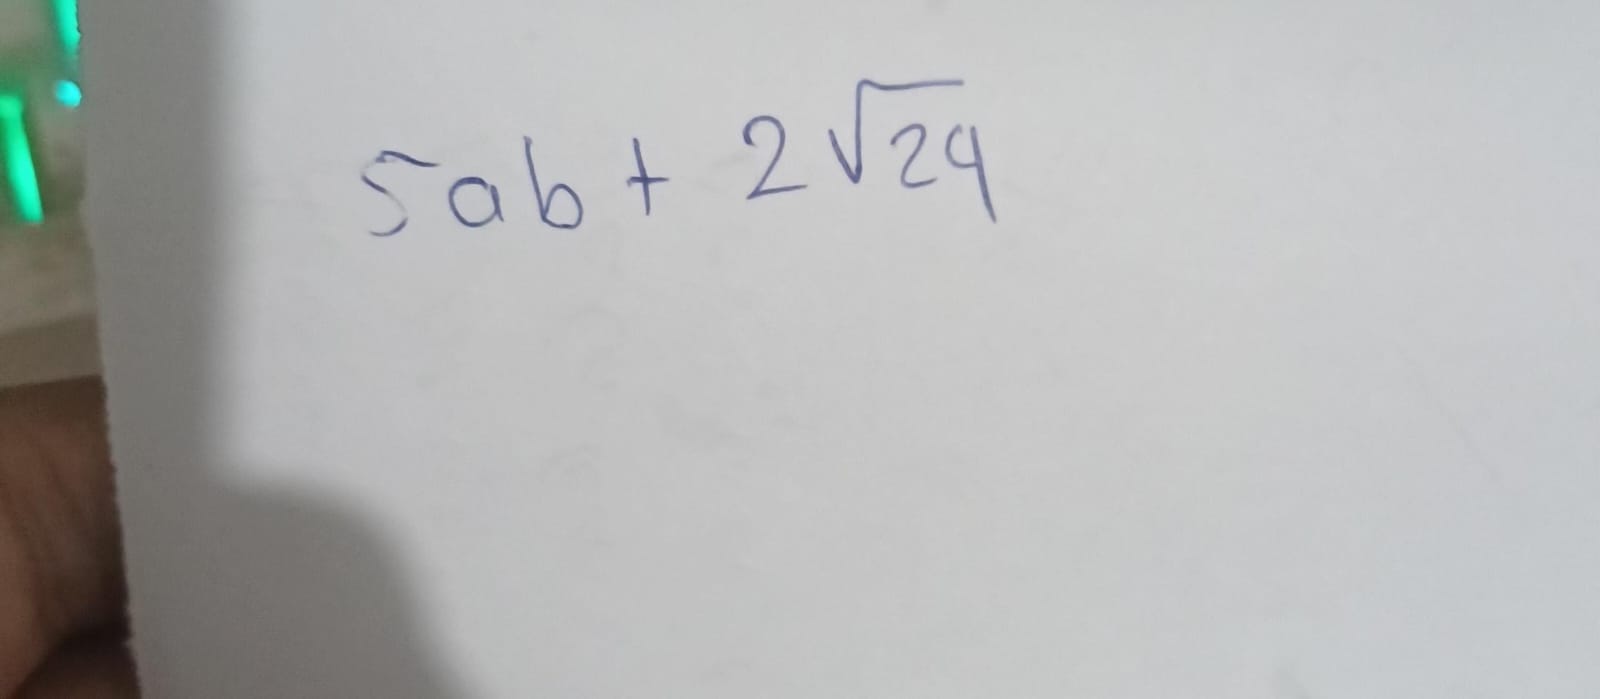 5ab + 2√24